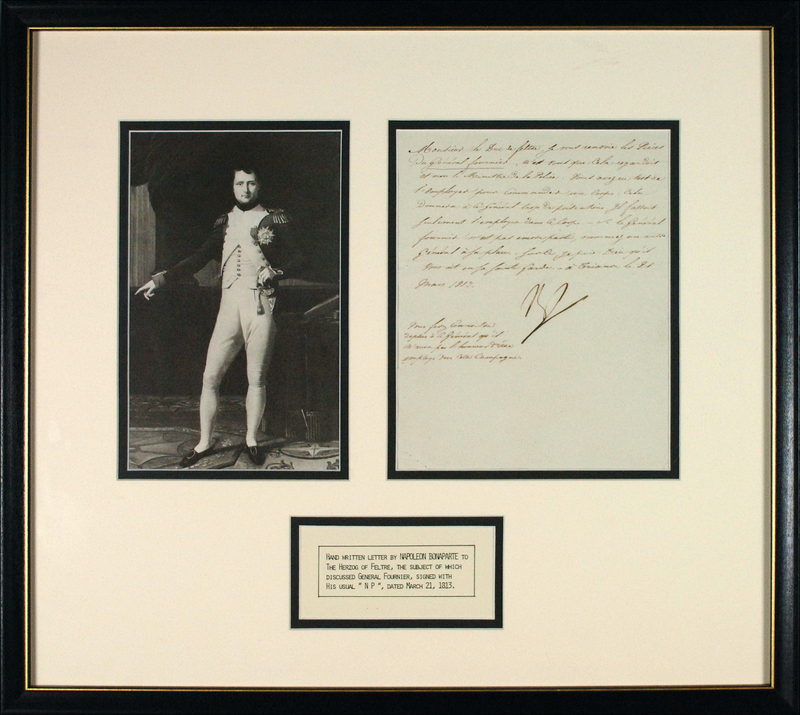 Monsieur le Duc de feltre, je vous renvoie les Pièces
du Général fournier. C'est vous que cela regarde
et non le Ministre de la Police. Vous
l'employez pour Commander un Corps. Cela
à ce Général trop de Il fallait
seulement l'employer dans le Corps le Général
fournier n'est pas nommez un autre
Général à sa place. Sur ce je prie Dieu qu'il
vous ait en sa Sainte Garde. à Trianon le 21
Mars 1813.
Np
Vous ferez Connaitre
à ce Général qu'il
n'aura pas l'honneur d'être
employé dans cette Campagne.
HAND WRITTEN LETTER BY NAPOLEON BONAPARTE TO
THE HERZOG OF FELTRE, THE SUBJECT OF WHICH
DISCUSSED GENERAL FOURNIER, SIGNED WITH
HIS USUAL " N P ", DATED MARCH 21, 1813.